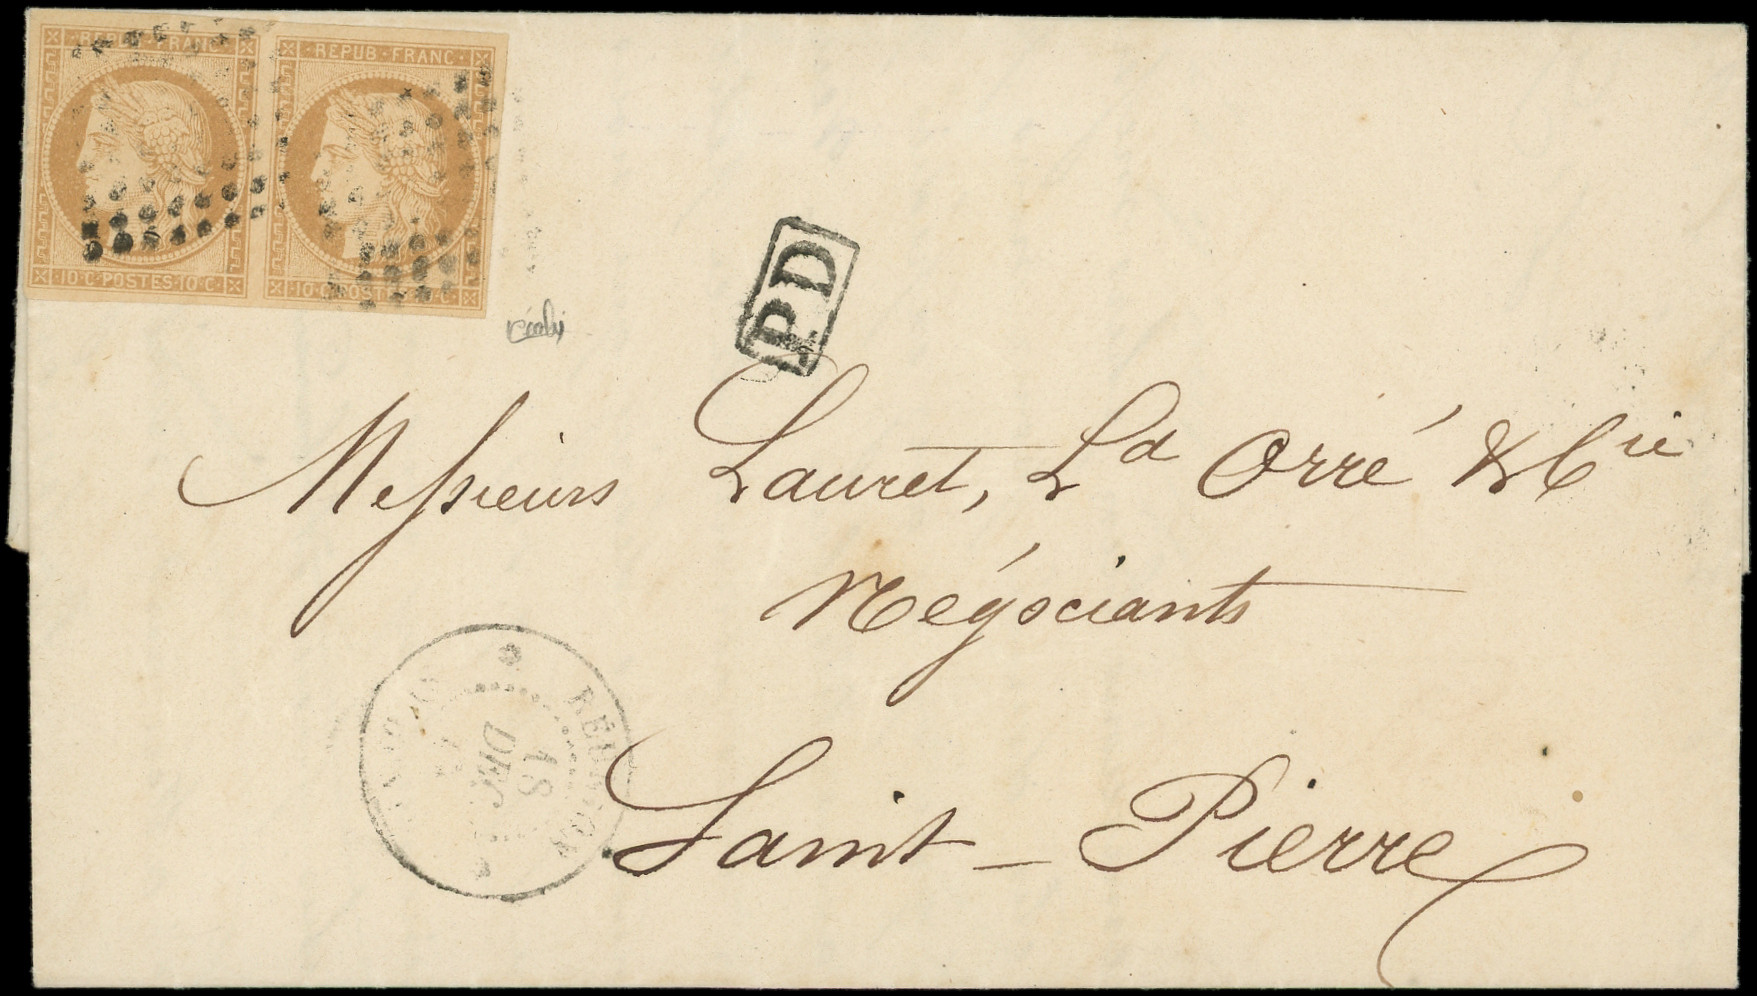 REPUB · FRANC
10 · C · POSTES · 10 · C
REPUB · FRANC ·
10 · C · POSTES
P.D
Messieurs Lauret, Ld Orré & Cie
Négociants
Saint-Pierre
RÉUNION
18
DEC